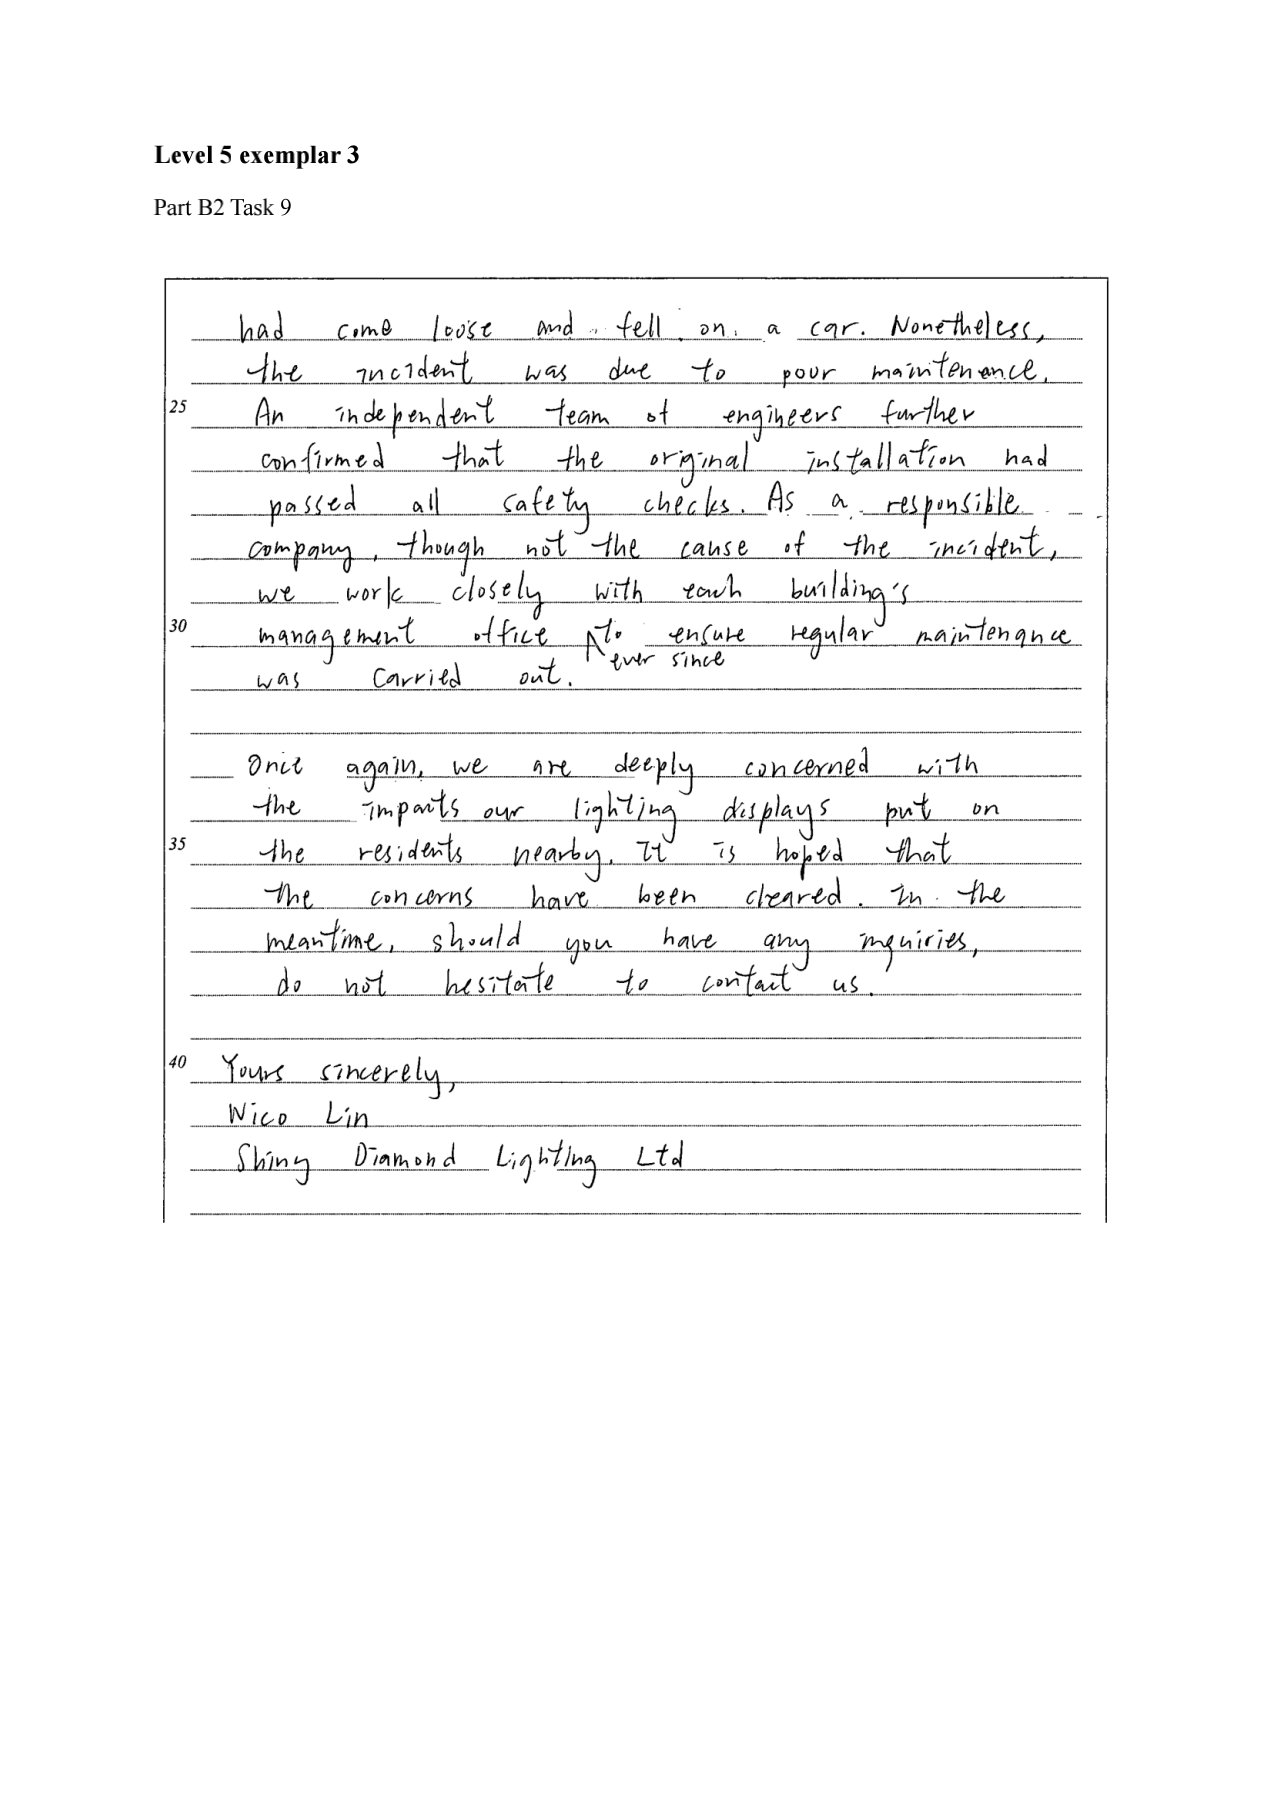 Level 5 exemplar 3
Part B2 Task 9
had come loose and fell on a car. Nonetheless,
the incident was due to poor maintenance.
25 An independent team of engineers further
confirmed that the original installation had
passed all safety checks. As a responsible
company, though not the cause of the incident,
we work closely with each building's
30 management office to ensure regular maintenance
ever since
was carried out.
Once again, we are deeply concerned with
the impacts our lighting displays put on
35 the residents nearby. It is hoped that
the concerns have been cleared. In the
meantime, should you have any inquiries,
do not hesitate to contact us.
40 Yours sincerely,
Nico Lin
Shiny Diamond Lighting Ltd